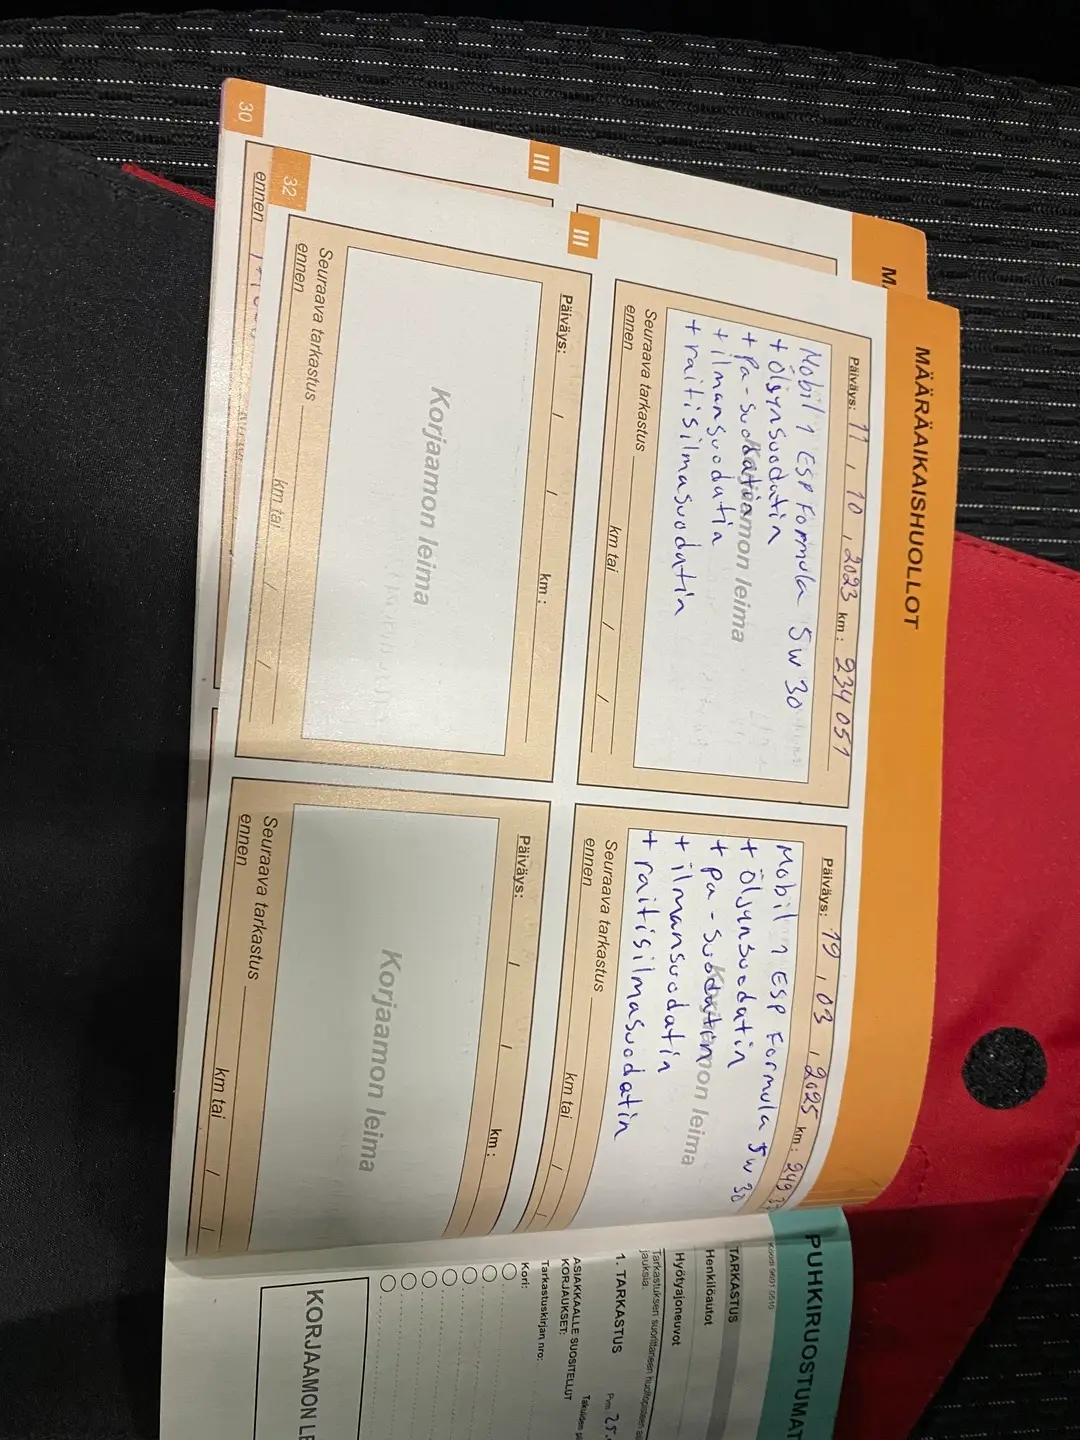 30
III
M
ennen
32
III
MÄÄRÄAIKAISHUOLLOT
Päiväys: 11 , 10 , 2023 km: 234 051
Mobil 1 ESP Formula 5w30
+ öljynsuodatin
+ pa-suodatin
+ ilmansuodatin
+ raitisilmasuodatin
Korjaamon leima
Seuraava tarkastus
ennen km tai / /
Päiväys: 19 , 03 , 2025 km: 249
Mobil 1 ESP Formula 5w30
+ öljynsuodatin
+ pa-suodatin
+ ilmansuodatin
+ raitisilmasuodatin
Korjaamon leima
Seuraava tarkastus
ennen km tai / /
Päiväys: / / km:
Korjaamon leima
Seuraava tarkastus
ennen km tai / /
Päiväys: / / km:
Korjaamon leima
Seuraava tarkastus
ennen km tai / /
PUHKIRUOSTUMAT
TARKASTUS
Henkilöautot
Hyötyajoneuvot
Tarkastuksen suorittaneen
jauksia.
1. TARKASTUS Pvm 25.
ASIAKKAALLE SUOSITELLUT
KORJAUKSET:
Tarkastuskirjan nro:
Kori:
KORJAAMON LE